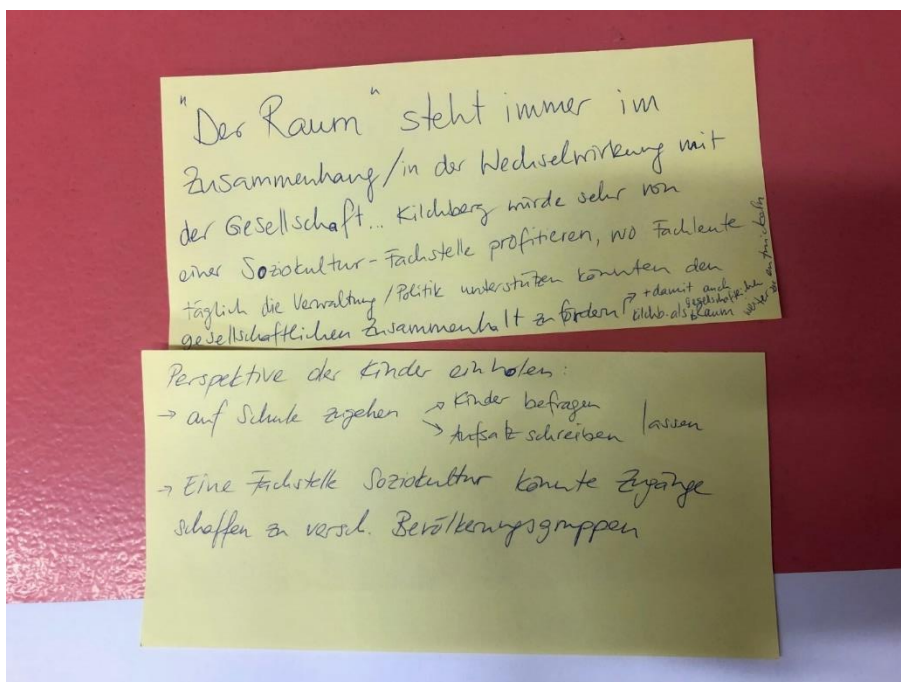 "Der Raum" steht immer im
Zusammenhang/in der Wechselwirkung mit
der Gesellschaft... Kilchberg würde sehr von
einer Soziokultur-Fachstelle profitieren, wo Fachleute
täglich die Verwaltung/Politik unterstützen könnten den
gesellschaftlichen Zusammenhalt zu fördern
→ + damit auch
gesellschaftlichen
Kilchb. als Raum
weiter zu entwickeln
Perspektive der Kinder einholen:
→ auf Schule zugehen → Kinder befragen
→ Aufsatz schreiben lassen
→ Eine Fachstelle Soziokultur könnte Zugänge
schaffen zu versch. Bevölkerungsgruppen